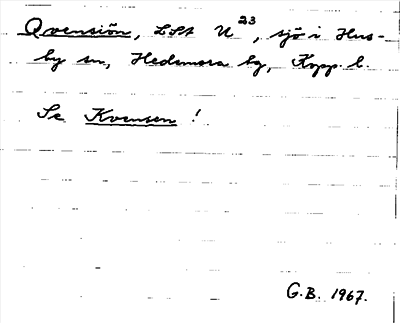 Qvensiön, LSA U 23, sjö i Hus-
by sn, Hedemora bg, Kopp. l.
Se Kvensen !
G.B. 1967.